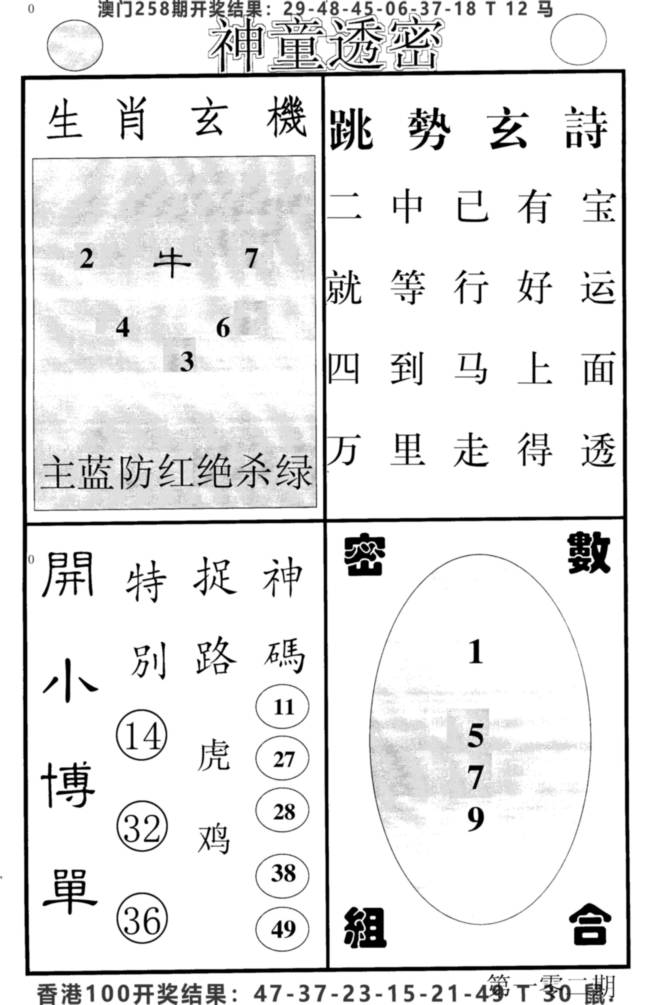 0
澳门258期开奖结果：29-48-45-06-37-18 T 12 马
神童透密
生肖玄機
2 牛 7
4 6
3
主蓝防红绝杀绿
跳勢玄詩
二中已有宝
就等行好运
四到马上面
万里走得透
0
開小博單
特別
14
32
36
捉路
虎
鸡
神碼
11
27
28
38
49
密數
1
5
7
9
組合
第一零二期
香港100开奖结果：47-37-23-15-21-49 T 30 鼠